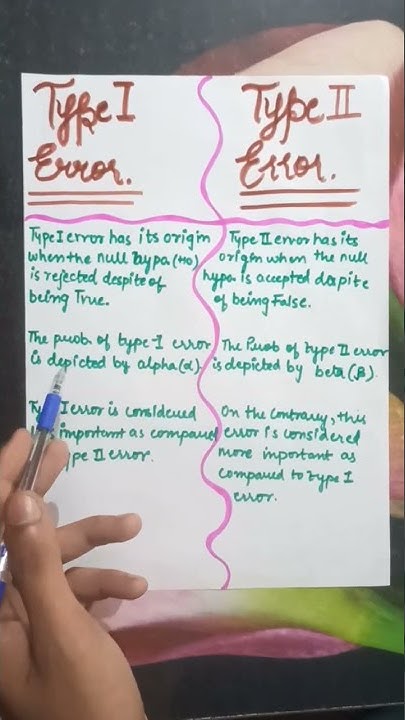 Type I
Error.
Type I error has its origin
when the null hypo (Ho)
is rejected despite of
being True.
The prob. of type-I error
is depicted by alpha(α).
I error is considered
important as compared
type II error.
Type II
Error.
Type II error has its
origin when the null
hypo is accepted despite
of being False.
The Prob of type II error
is depicted by beta(β).
On the Contrary, this
error is considered
more important as
compared to type I
error.